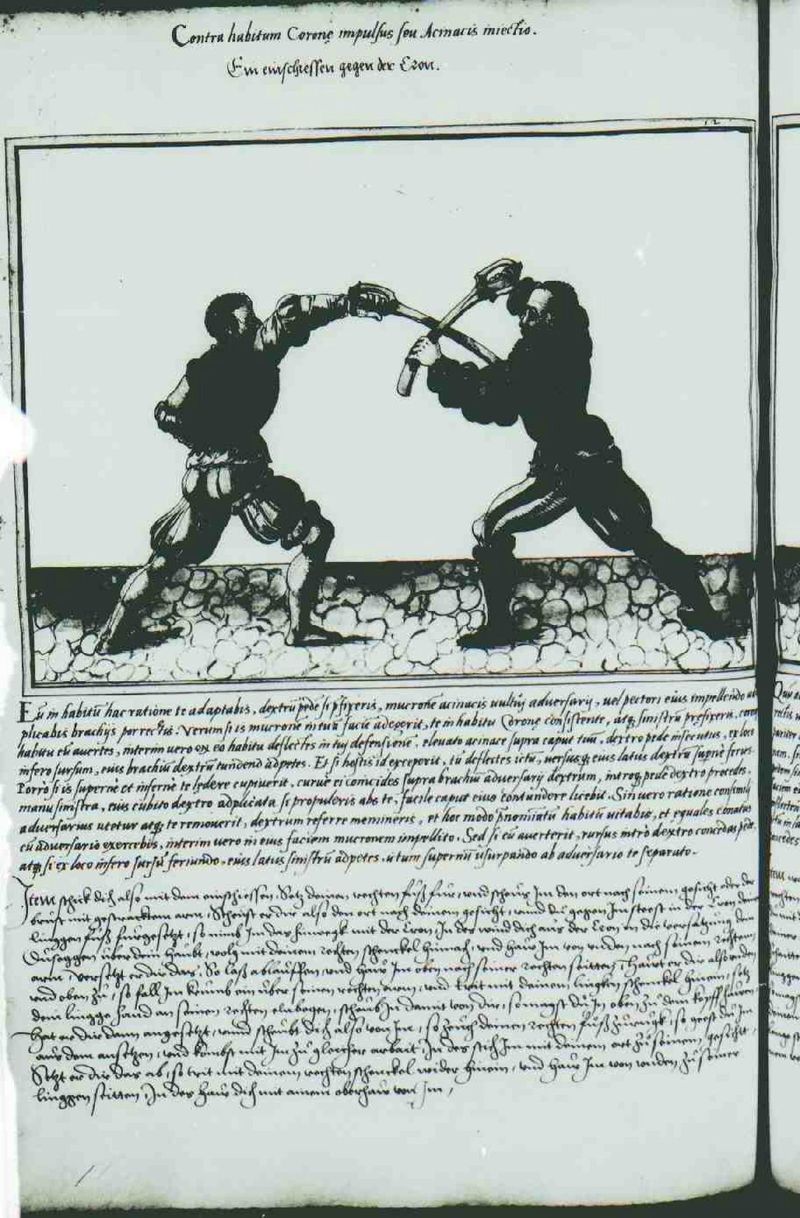 Contra habitum Coronę impulsus seu Acinacis iniectio.
Ein einschiessen gegen der Cron.
12
Eū in habitū hac ratione te adaptabis, dextrū pede si pfixeris, mucronē acinacis vultuj adversarij, vel pectori eius impellendo
plicabis brachijs porrectis: Verum si is mucronē in tuā faciē adegerit, te in habitu Coronę consistente, atq sinistrū prefixeris,
habitu eū avertes, interim vero ex eo habitu deflectes in tuj defensionē, elevato acinace supra caput tuū, dextro pede insecutus, ex loco
infero sursum, eius brachiū dextrū tundendo adpetes. Et si hostis id exceperit, tū deflectes ictū, versusq eius latus dextrū supnē feries.
Porro si is supernē et infernē te lędere cupiverit, curvē ei concides supra brachiū adversarij dextrum, introq pede dextro procedes,
manu sinistra, eius cubito dextro adplicata si propuleris abs te, facile caput eius contundere licebit. Sin vero ratione consimili
adversarius utetur atq te removerit, dextrum referre memineris, et hoc modo pnominatū habitū vitabis, et equales conatus
cū adversario exercebis, interim vero in eius faciem mucronem impellito. Sed si eū averterit, rursus intrò dextro concedas pede,
atq si ex loco infero sursū feriundo, eius latus sinistrū adpetes, utum supernū usurpando ab adversario te separato.
Item schick dich also mit dem einschiessen. Setz deinen rechten fuß für, und scheuß Im den ort nach seinem gesicht oder der
brust mit gestracktem arm, Scheust er dir also den ort nach deinem gesicht, und du gegen Im steest in der Cron
linggen fuß fürgesetzt, so nimb Im das hinwegk mit der Cron, In der wind dich aus der Cron in die versatzung dem
Duseggen über dein haubt, volg mit deinem rechten schenckel hinnach, und haw Im von unden nach seinem rechtem
arm. Versetzt er dir das, So laß ablauffen, und haw Im oben nach seiner rechten seitten, Hawt er dir alßvnden
und oben zu, so fall Im krumb ein über seinen rechten arm, und trit mit deinem linggen schenckel hinein, setz
dein lingge hand an seinen rechten elnbogen, scheub In damit von dir, so magst du In oben zu dem kopff hawen
Hat er dir dann angesetzt, und scheubt dich also von Im, so zeuch deinen rechten fuß zurugk, so geest du Im
aus dem ansetzen, und kombst mit Im zu gleicher arbait, In der stich Im mit deinem ort zu seinem gesicht,
Setzt er dir das ab, so trit mit deinem rechten schenckel wider hinein, und haw Im von unden zu seiner
linggen seitten, In der haw dich mit ainem oberhaw von Im,